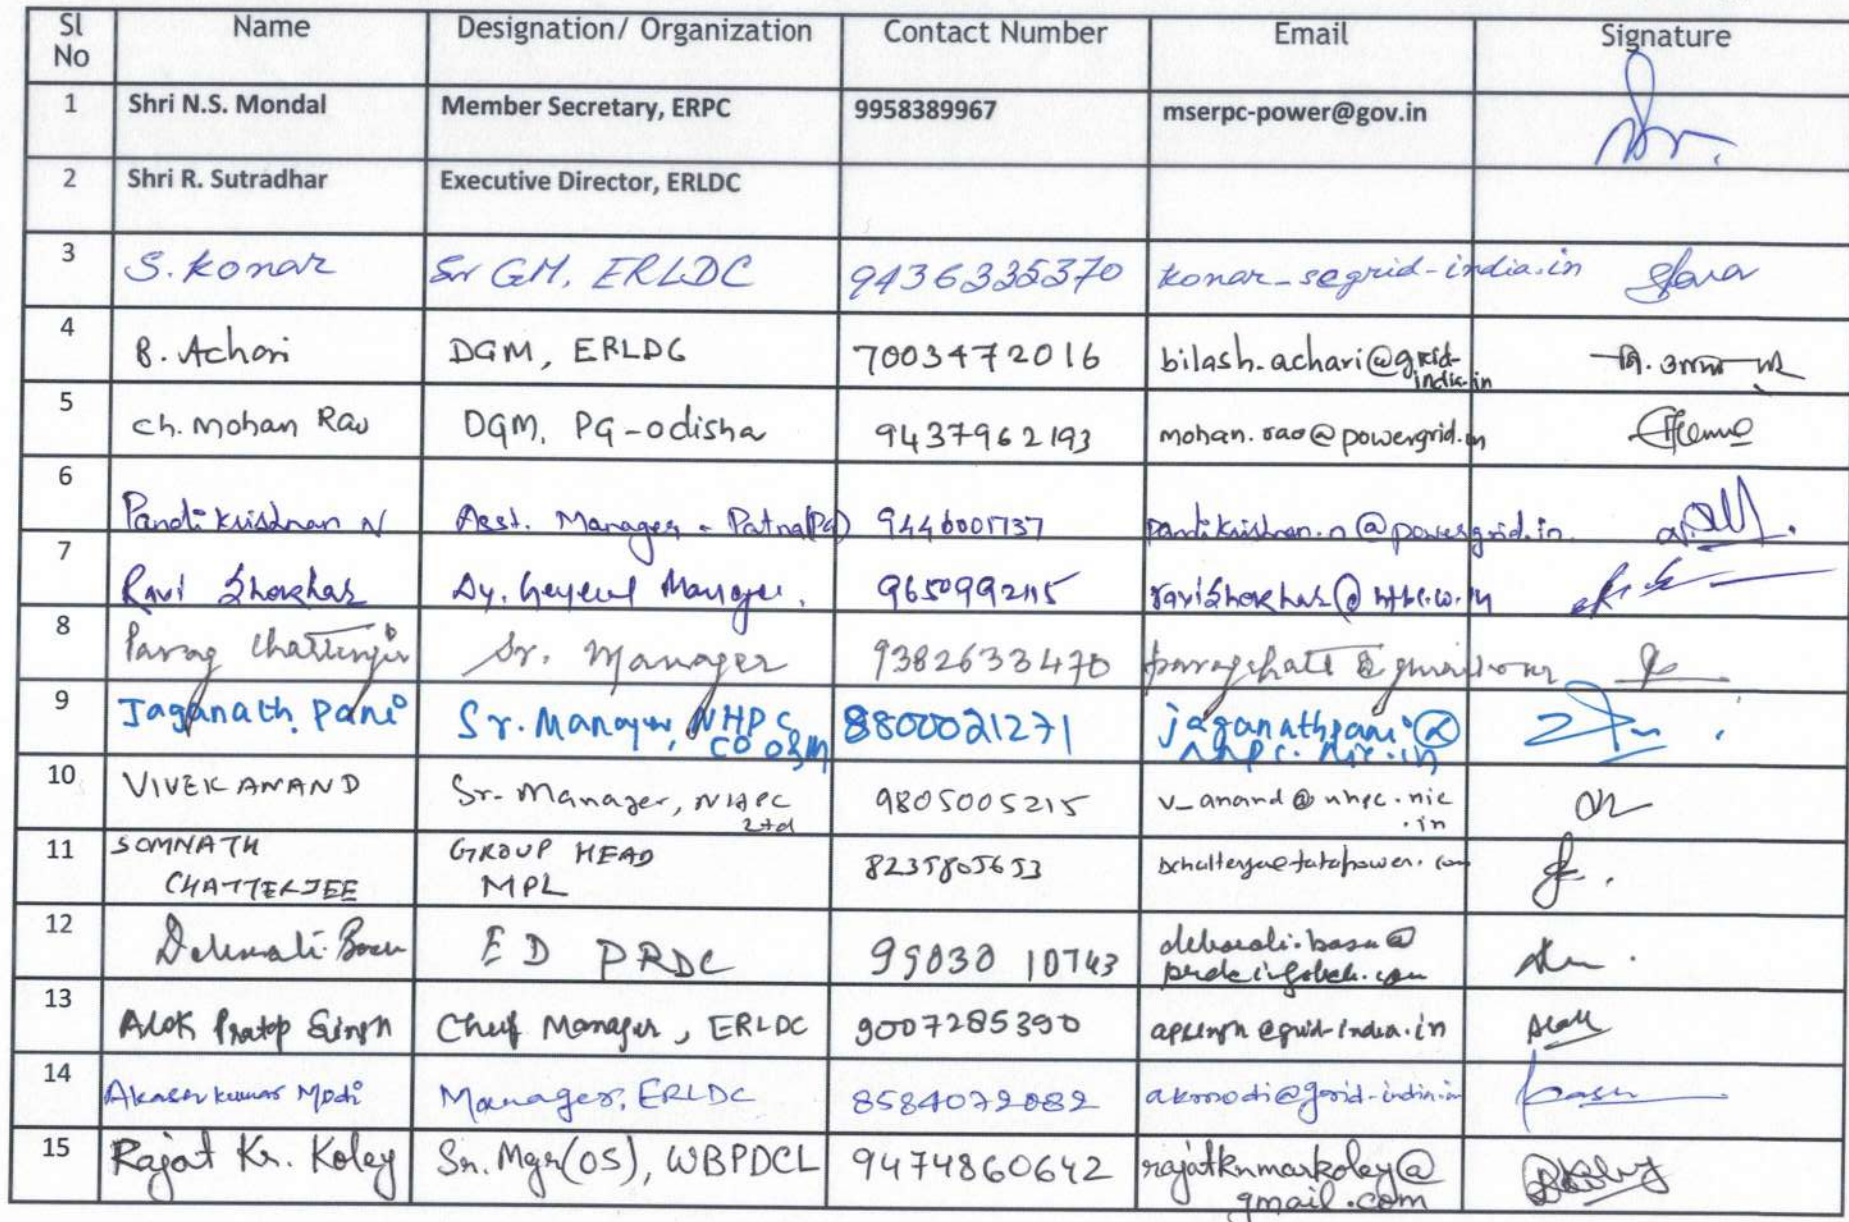 Sl No Name Designation/ Organization Contact Number Email Signature
1 Shri N.S. Mondal Member Secretary, ERPC 9958389967 mserpc-power@gov.in
2 Shri R. Sutradhar Executive Director, ERLDC
3 S. Konar Sr GM, ERLDC 9436335370 konar_s@grid-india.in
4 B. Achari DGM, ERLDC 7003472016 bilash.achari@grid-
india.in
5 Ch. Mohan Rao DGM, PG-Odisha 9437962193 mohan.rao@powergrid.in
6 Pandi Krishnan N Asst. Manager - Patna(PG) 9446001737 pandikrishnan.n@powergrid.in
7 Ravi Shekhar Dy. General Manager. ravishekhar@
8 Parag Chatterjee Sr. Manager 9382633470
9 Jaganath Pani Sr. Manager, NHPC 8800021271 jaganathpani@
CO O&M nhpc.nic.in
10 VIVEK ANAND Sr. Manager, NHPC 9805005215 v_anand@nhpc.nic
Ltd .in
11 SOMNATH GROUP HEAD 8235805653
CHATTERJEE MPL
12 Debarati Basu ED PRDC 99030 10743 debarati.basu@
prdcinfotech.com
13 Alok Pratap Singh Chief Manager, ERLDC 9007285390 apsingh@grid-india.in
14 Akash Kumar Modi Manager, ERLDC 8584072082 akmodi@grid-india.in
15 Rajat Kr. Koley Sr. Mgr(OS), WBPDCL 9474860642 rajatkumarkoley@
gmail.com